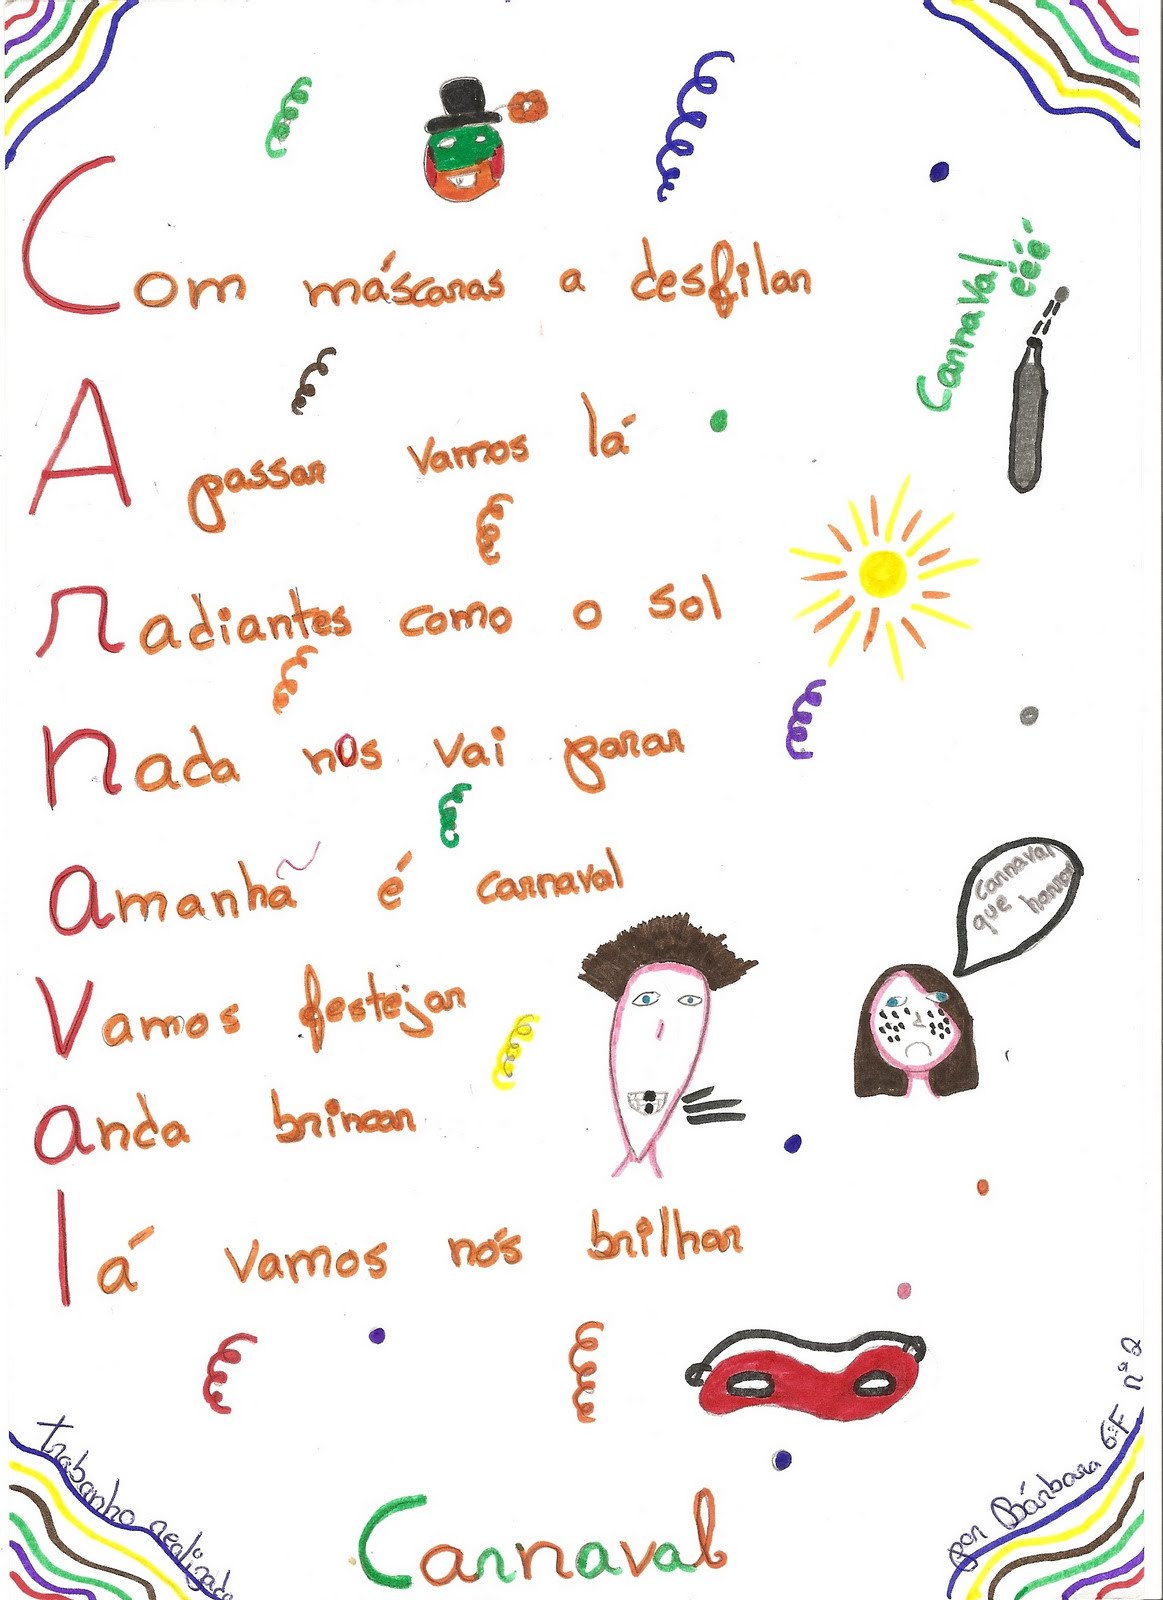 Com máscaras a desfilar
Carnaval
ééé
A passar vamos lá
radiantes como o sol
nada nos vai parar
amanhã é carnaval
Carnaval
que horror
Vamos festejar
anda brincar
lá vamos nós brilhar
trabanho realizado
por Bárbara 6ºF nº2
Carnaval